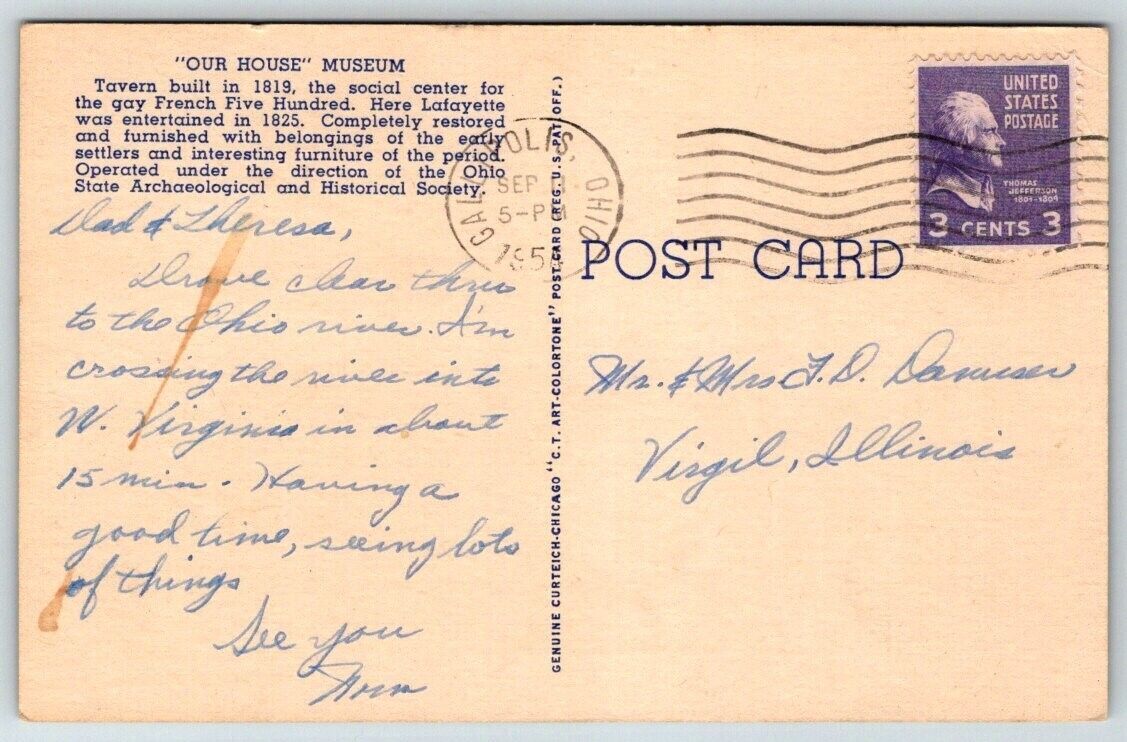 "OUR HOUSE" MUSEUM
Tavern built in 1819, the social center for
the gay French Five Hundred. Here Lafayette
was entertained in 1825. Completely restored
and furnished with belongings of the early
settlers and interesting furniture of the period.
Operated under the direction of the Ohio
State Archaeological and Historical Society.
Dad & Theresa,
Drove clear thru
to the Ohio river. I'm
crossing the river into
W. Virginia in about
15 min. Having a
good time, seeing lots
of things
See you
GENUINE CURTEICH-CHICAGO "C.T. ART-COLORTONE" POST CARD (REG. U.S. PAT. OFF.)
GALLIPOLIS, OHIO
SEP
5-PM
1954
UNITED
STATES
POSTAGE
THOMAS
JEFFERSON
1801-1809
3 CENTS 3
POST CARD
Mr. & Mrs F. D. Danuser
Virgil, Illinois